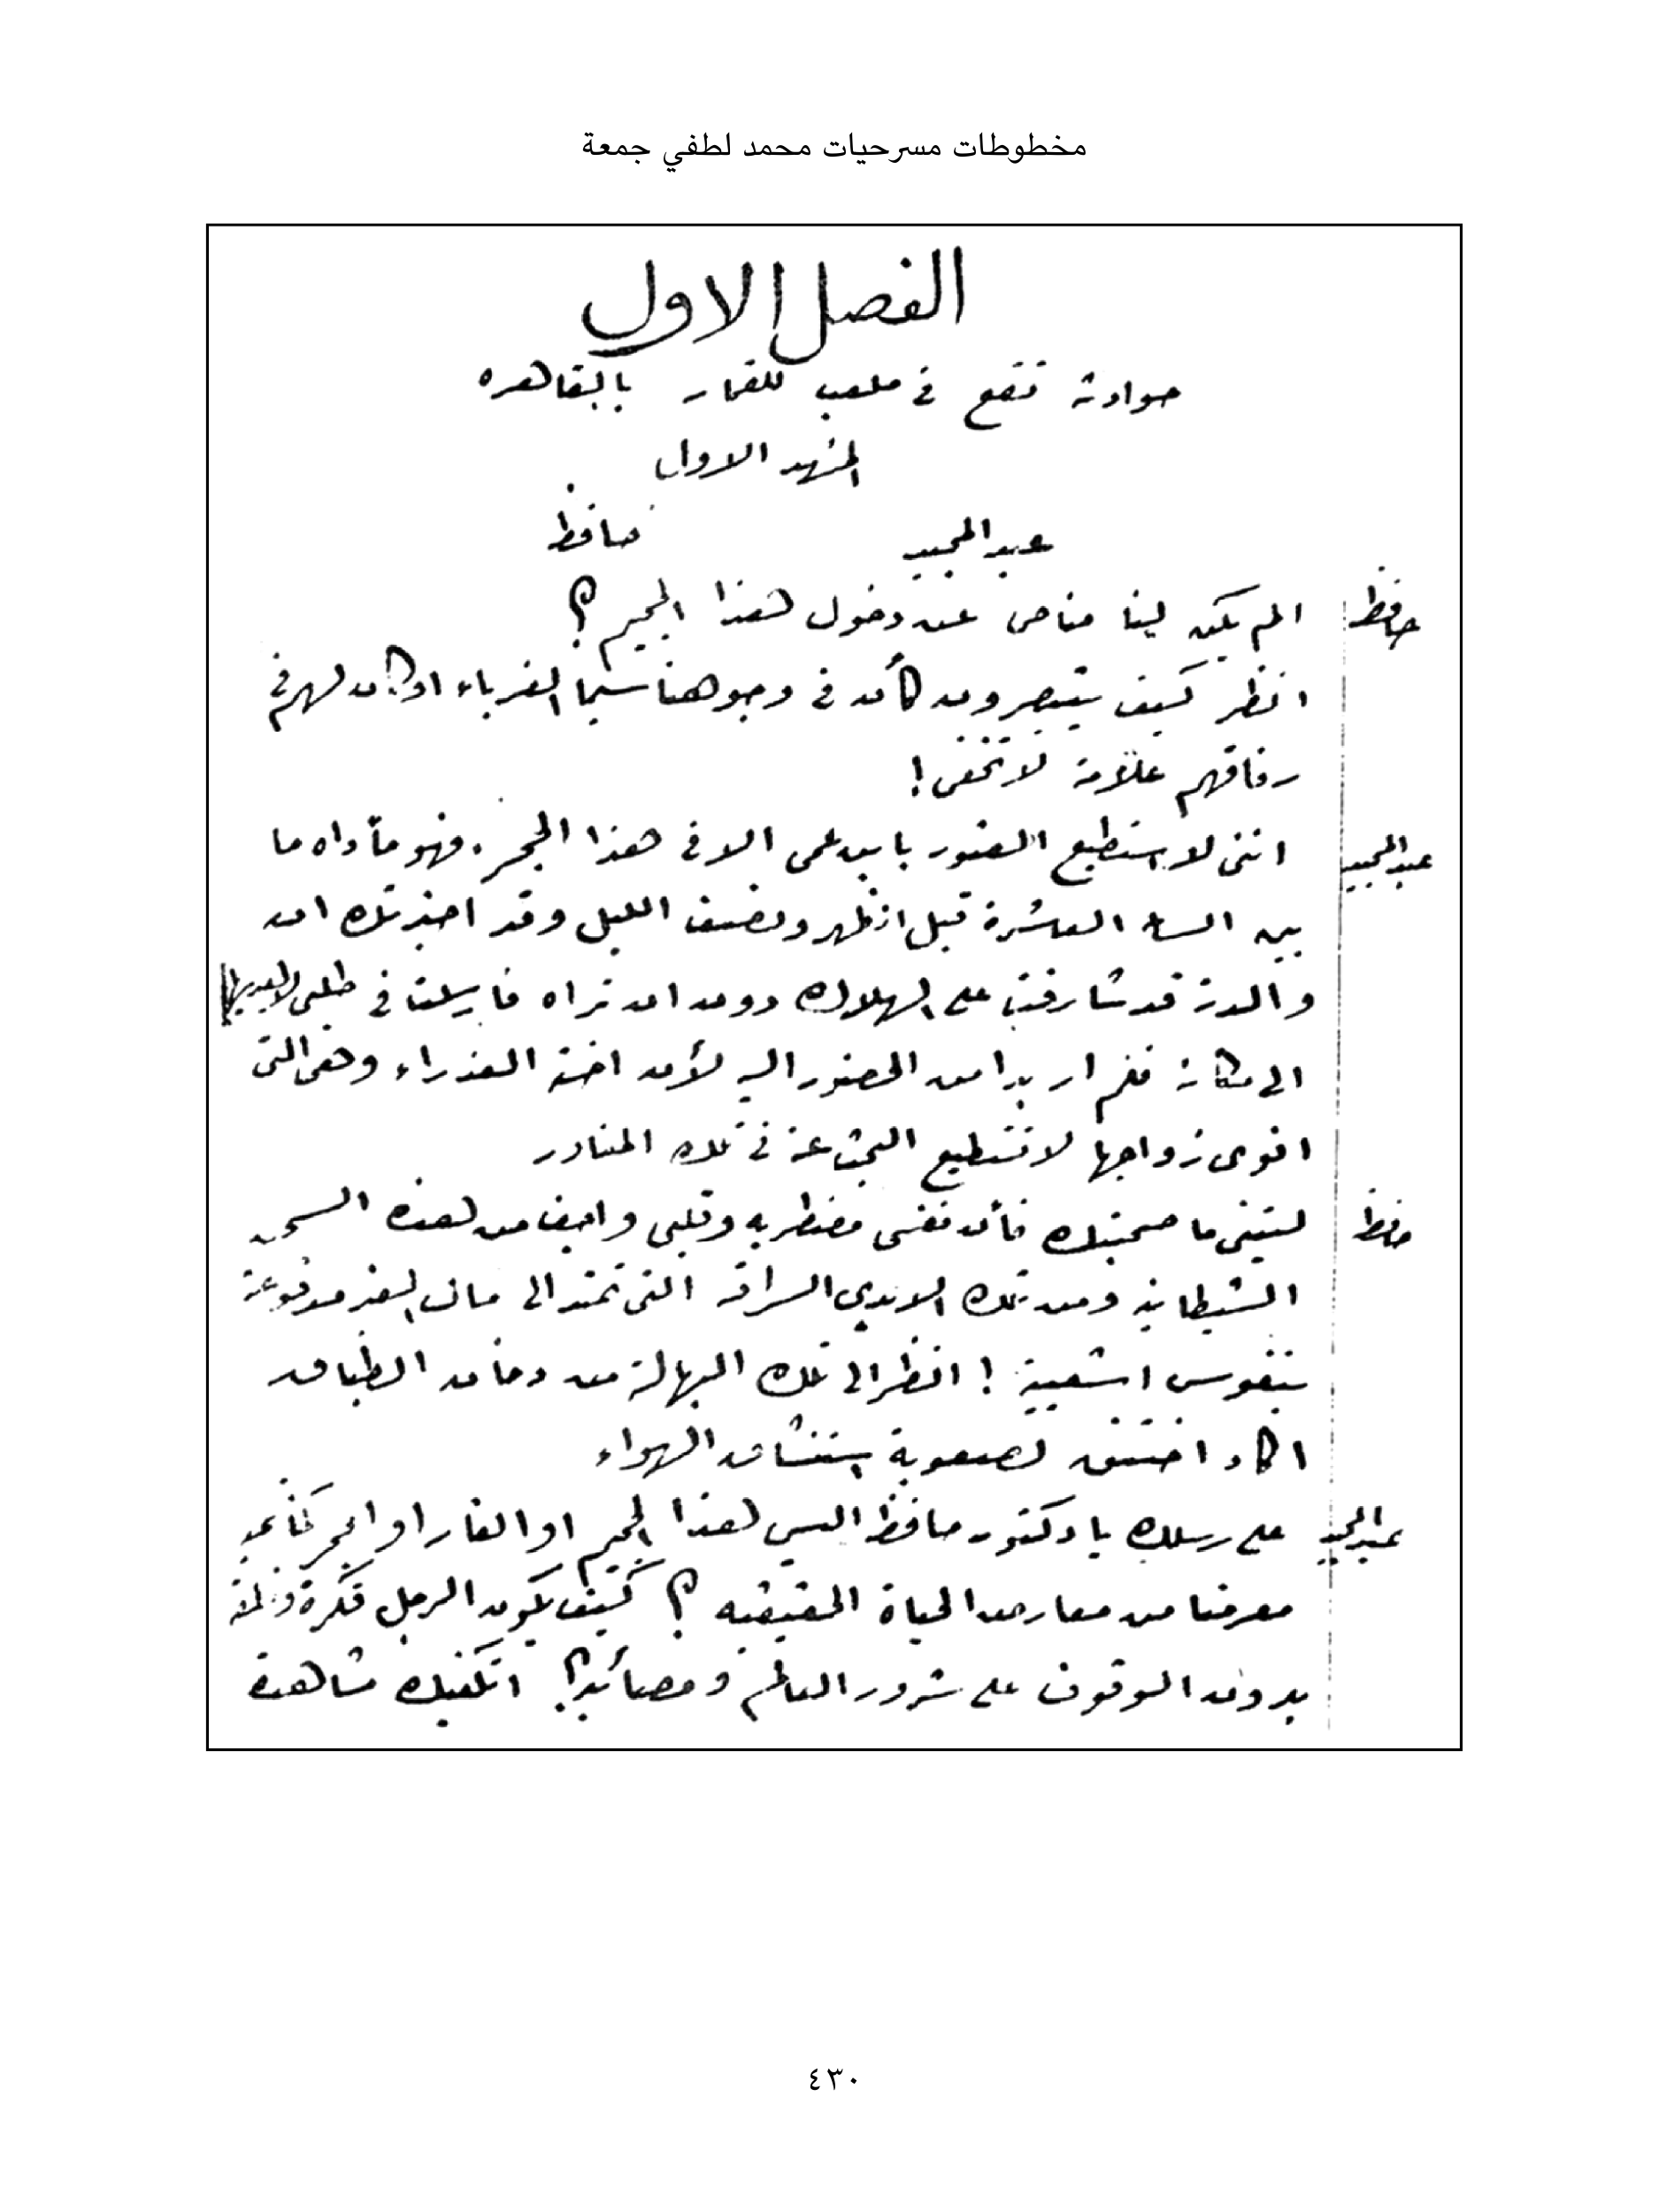 مخطوطات مسرحيات محمد لطفي جمعة
الفصل الاول
حوادثه تقع في ملعب للقمار بالقاهره
المشهد الاول
عبد المجيد حافظ
حافظ الم يكن لنا مناص عن دخول هذا الجحيم؟
انظر كيف يتبصرون كأن في وجوهنا سيما الغرباء او كان لهم في
رفاقهم علامة لا تخفى!
عبد المجيد انني لا استطيع العثور بابن عمي الا في هذا الجحر. فهو مأواه ما
بين الساعة العاشرة قبل الظهر ونصف الليل وقد اخبرتك ان
والدته قد شارفت على الهلاك دون ان تراه فارسلت في طلبي لاهديها
الى مكانه فلم ار بدا من الحضور اليه لأن اخته العذراء وهي التي
انوي زواجها لا تستطيع البحث عنه في تلك المنادر
حافظ ليتني ما صحبتك فأن نفسي مضطربه وقلبي واجف من هذه السحن
الشيطانيه ومن تلك الايدي السراقه التي تمتد الى مال الغير مدفوعة
بنفوس اشعبية! انظر الى تلك الهالة من دخان الطباق
اكاد اختنق لصعوبة استنشاق الهواء
عبد المجيد على رسلك يا دكتور حافظ اليس هذا الجحيم او الغار او الجحر كما
معرضا من معارض الحياة الحقيقيه؟ كيف يكون الرجل فكرة
بدون الوقوف على شرور العالم ومصائبه؟ اتكفيك مشاهدة
٤٣٠